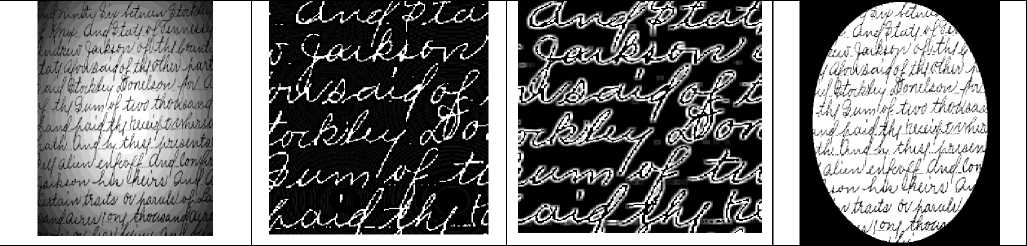 and ninety Six between Stockley
Knox. And State of Tennessee
Andrew Jackson of the
State aforesaid of the other part
said Stockley Donelson for A
of the Sum of two thousand
hand paid the receipt where
hath And by these presents
alien enfeoff And
Jackson his heirs And A
certain traits or parcels of La
sand Acres long thousand Acres
And Stat
w. Jackson
oresaid of
tockley Don
Sum of tw
paid the re
And Stat
Jackson
oresaid of t
ockley Don
um of tw
aid the
Six between
And Stat of Tenn
rew Jackson of the
aforesaid of the other
Stockley Donelson for
the Sum of two thousan
and paid the receipt wher
th. And by these presen
alien enfeoff And Con
son his heirs An
tain traits or parcels
long thousand